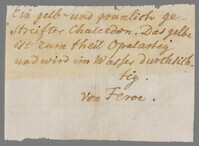 Ein gelb- und grünlich ge-
streifter Chalcedon. Das gelbe
ist zum theil Opalartig
und wird im Wasser durchsich-
tig.
Von Feroe.